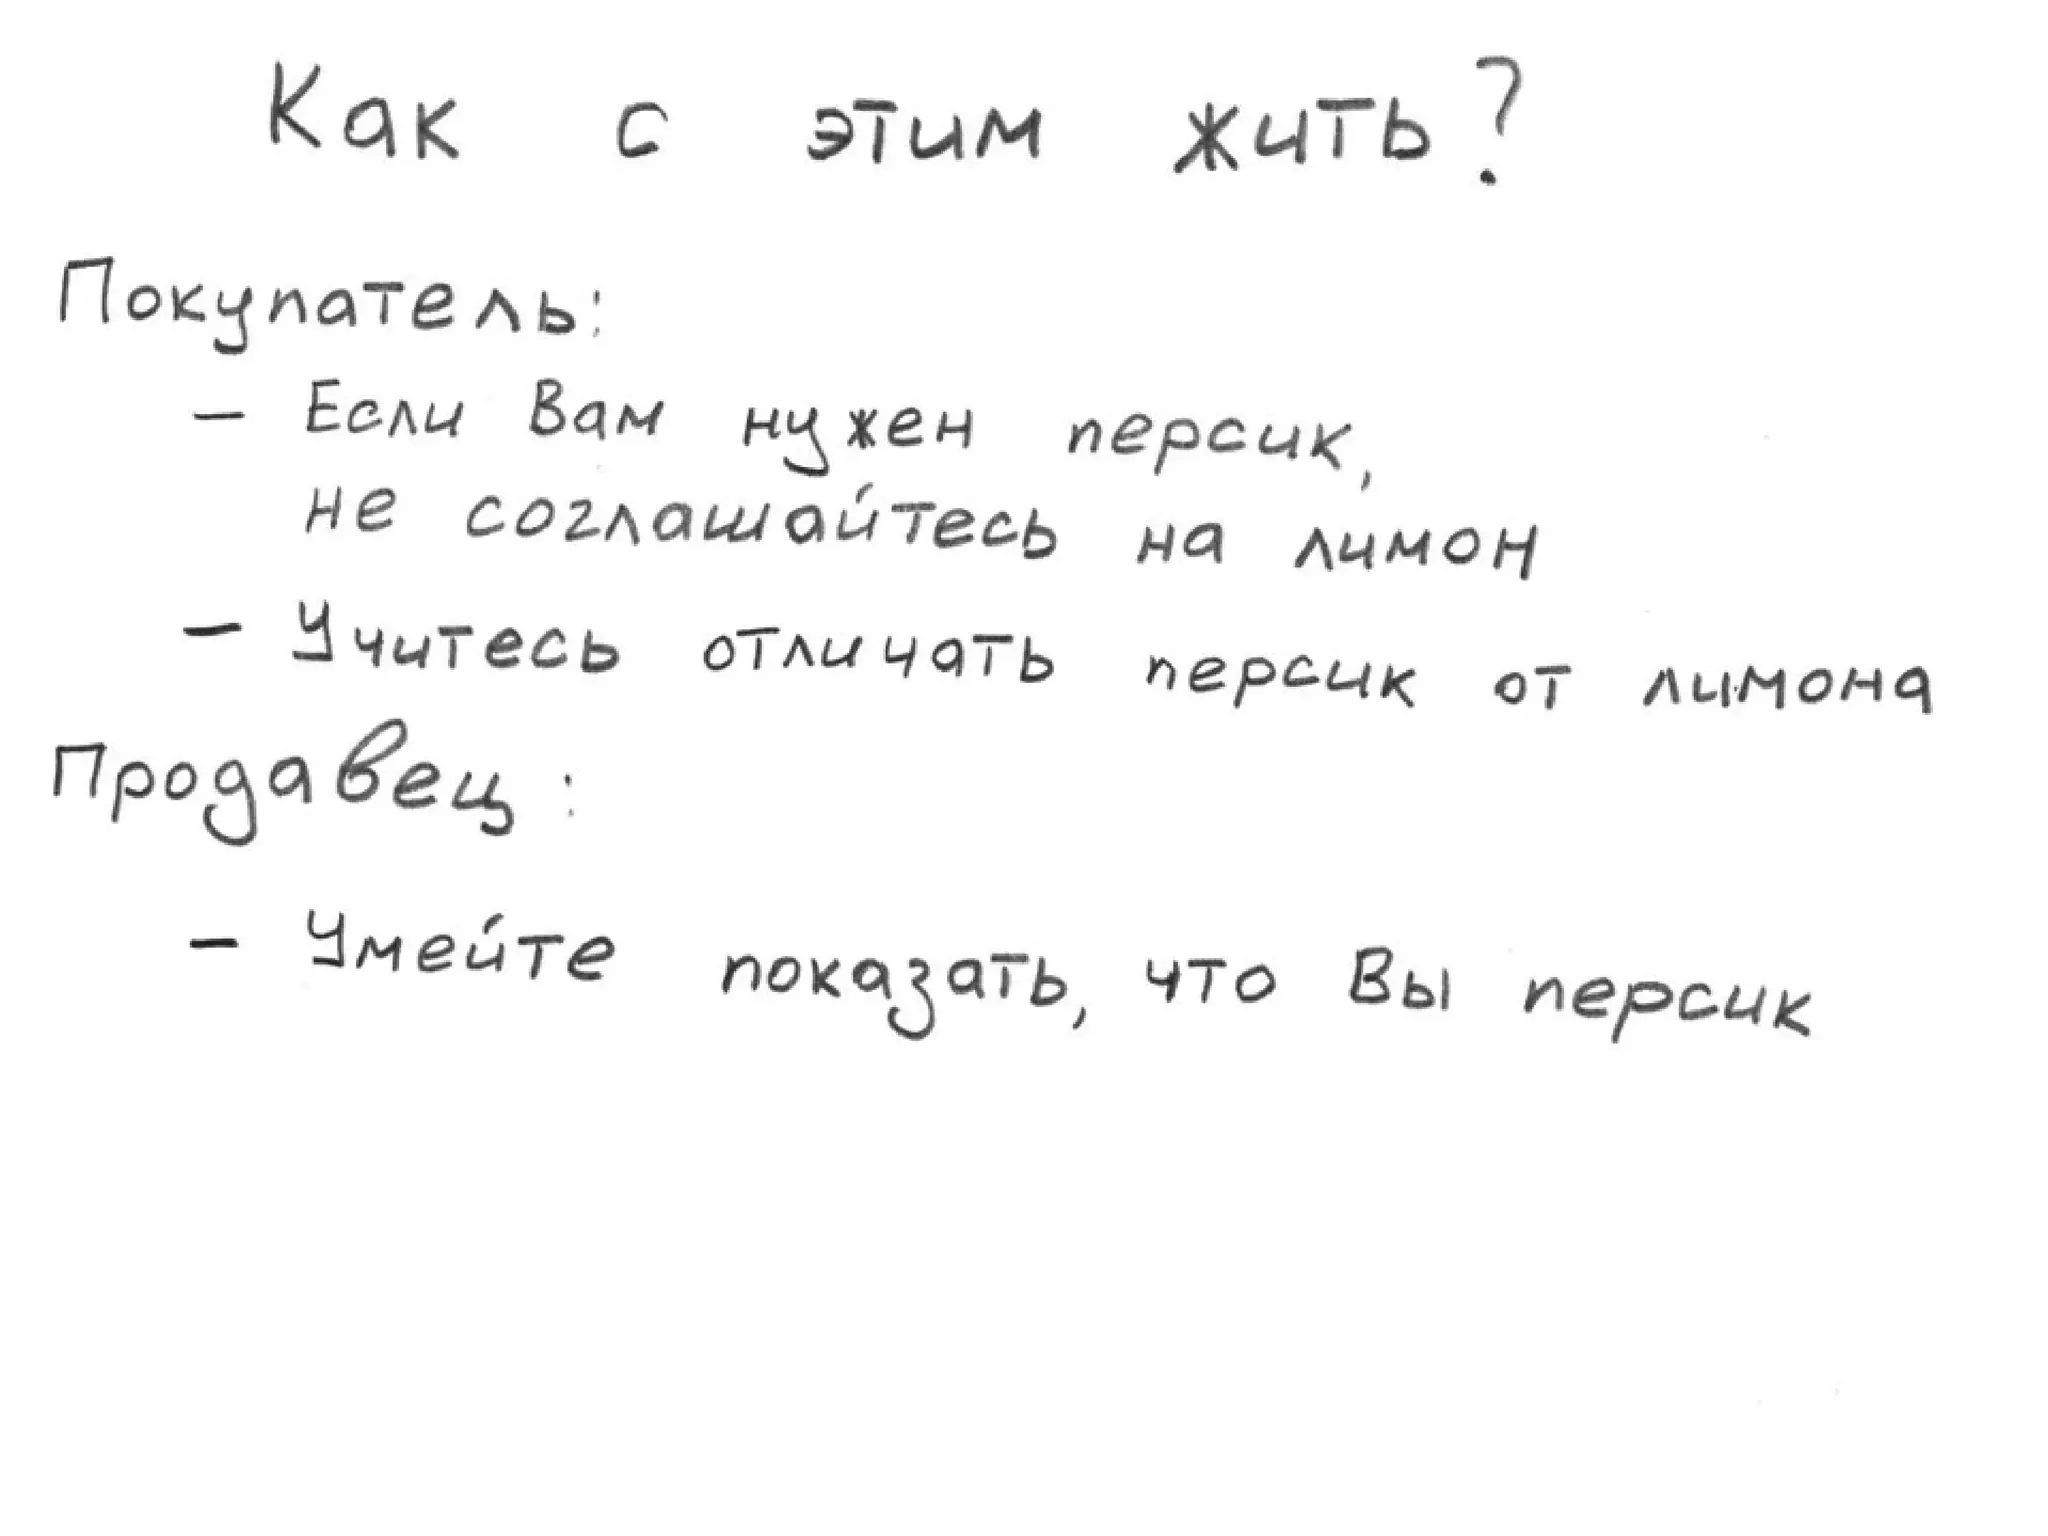 Как с этим жить?
Покупатель:
- Если Вам нужен персик,
не соглашайтесь на лимон
- Учитесь отличать персик от лимона
Продавец:
- Умейте показать, что Вы персик